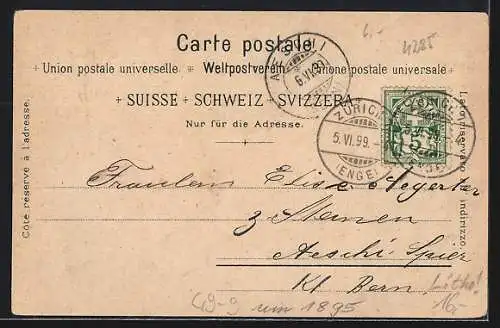 6.-
4285
Carte postale.
Union postale universelle Weltpostverein Unione postale universale
SUISSE SCHWEIZ SVIZZERA
Nur für die Adresse.
Côté réservé à l'adresse.
Lato riservato all' indirizzo.
AESCHI
6.VI.99
ZÜRICH
5.VI.99.
(ENGE)
ZÜRICH
5
Fraulein Elise Aegerter
z Steinen
Aeschi Spiez
Kt. Bern.
Litho!
16.-
um 1895